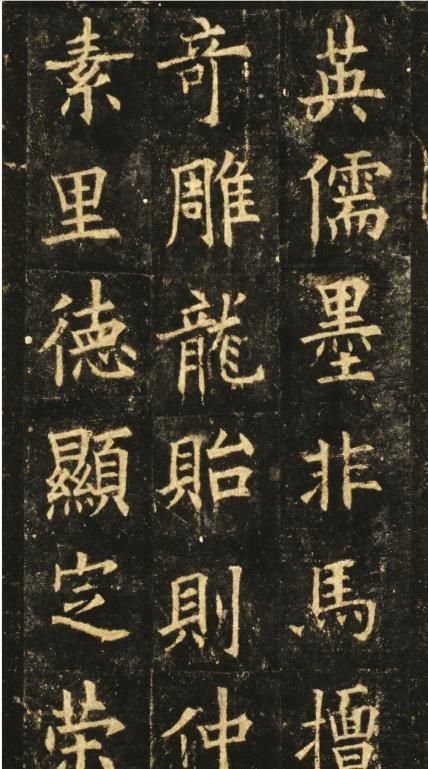 英儒墨非馬擅
奇雕龍貽則仲
素里德顯定荣